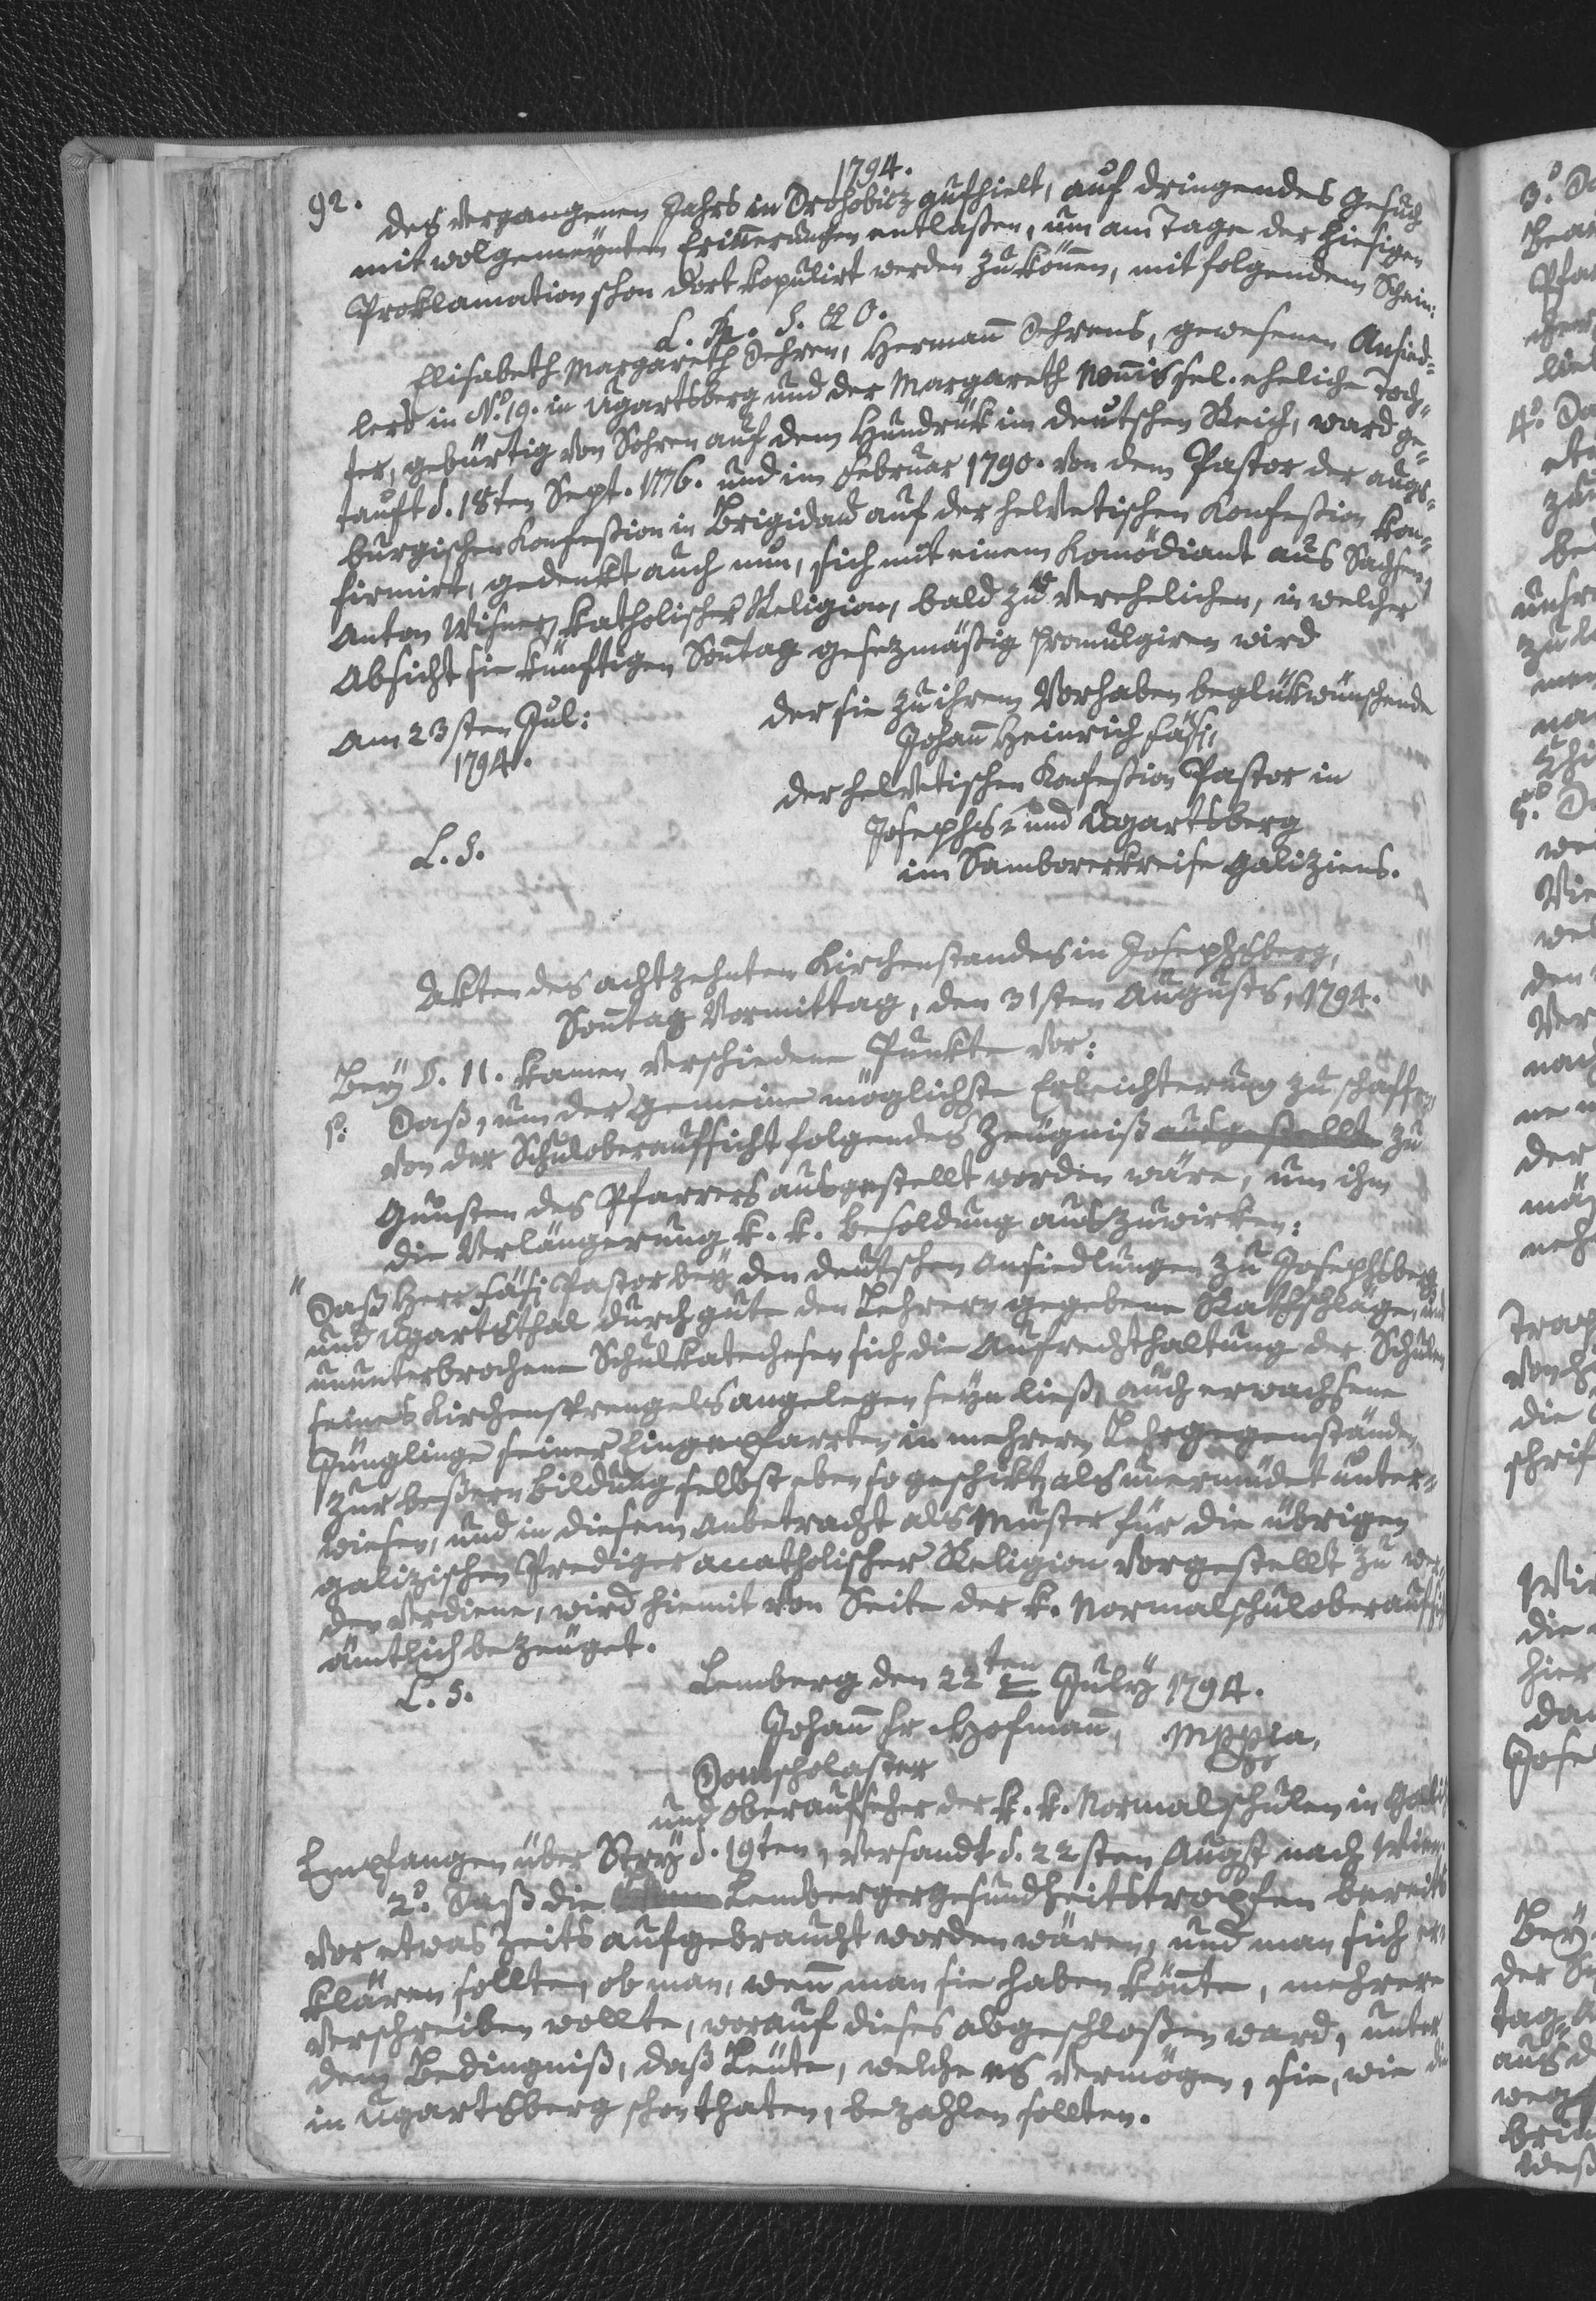 1794.
92.
des vergangenen Jahrs in Drohobitz aufhielt, auf dringendes Gesuch
mit wolgemeynten Erin̄erungen entlaßen, um am Tage der hiesigen
Proklamation schon dort kopulirt werden zu kön̄en, mit folgendem Schein:
L. B. S. & O.
Elisabeth Margareth Dehren, Herman̄ Dehrens, gewesenen Ansied-
lers in No. 19. in Ugartsberg und der Margareth Non̄is sel. eheliche Toch-
ter, gebürtig von Sohren auf dem Hundrük im deutschen Reich, ward ge-
tauft d. 18ten Sept. 1776. und im Februar 1790. von dem Pastor der augs-
burgischen Konfeßion in Brigidau auf der helvetischen Konfeßion kon-
firmirt, gedenkt auch nun, sich mit einem Komödiant aus Sachsen,
Anton Wisner, katholischer Religion, bald zu verehelichen, in welcher
Absicht sie künftigen Son̄tag gesezmäßig promulgiren wird
Am 23sten Jul:
1794.
der sie zu ihrem Vorhaben beglükwünschende
Johan̄ Heinrich Fäsi,
der helvetischen Konfeßion Pastor in
Josephs- und Ugartsberg
im Samborerkreise Galiziens.
L. S.
Akten des achtzehnten Kirchenstandes in Josephsberg,
Son̄tag Vormittag, den 31sten Augusts, 1794.
Bey §. 11. kamen verschiedene Punkte vor:
1o. Daß, um der Gemeine möglichste Erleichterung zu schaffen,
von der Schuloberaufsicht folgendes Zeugniß ausgestellt zu
Gunsten des Pfarrers ausgestellt worden wäre, um ihm
die Verlängerung k. k. Besoldung auszuwirken:
"Daß Herr Fäsi Pastor bey den deutschen Ansiedlungen zu Josephsberg
und Ugartsthal durch gute den Lehrern gegebene Rathschläge, und
ununterbrochene Schulkatechesen sich die Aufrechthaltung der Schulen
seines Kirchensprengels angelegen seyn ließ, auch erwachsene
Jünglinge seiner Eingepfarrten in mehrern Lehrgegenständen
zur beßern Bildung selbst eben so geschikt, als unermüdet unter-
wiesen, und in diesem Anbetracht als Muster für die übrigen
galizischen Prediger acatholischer Religion vorgestellt zu wer-
den verdiene, wird hiemit von Seite der k. Normalschuloberaufsicht
ämtlich bezeuget.
L. S.
Lemberg den 22ten July 1794.
Johan̄ Fr Hofman̄, Mppia,
Domscholaster
und Oberaufseher der k. k. Normalschulen in Galiz
Empfangen über Stry d. 19ten, versandt d. 22sten Augst nach Wien.
2o. Daß die Lembergergesundheitstropfen bereits
vor etwas Zeits aufgebraucht worden wären, und man sich er-
klären sollte, ob man, wen̄ man sie haben kön̄te, mehrere
verschreiben wollte, worauf dieses abgeschloßen ward, unter
dem Bedingniß, daß Leute, welche es vermögen, sie, wie die
in Ugartsberg schon thaten, bezahlen sollten.